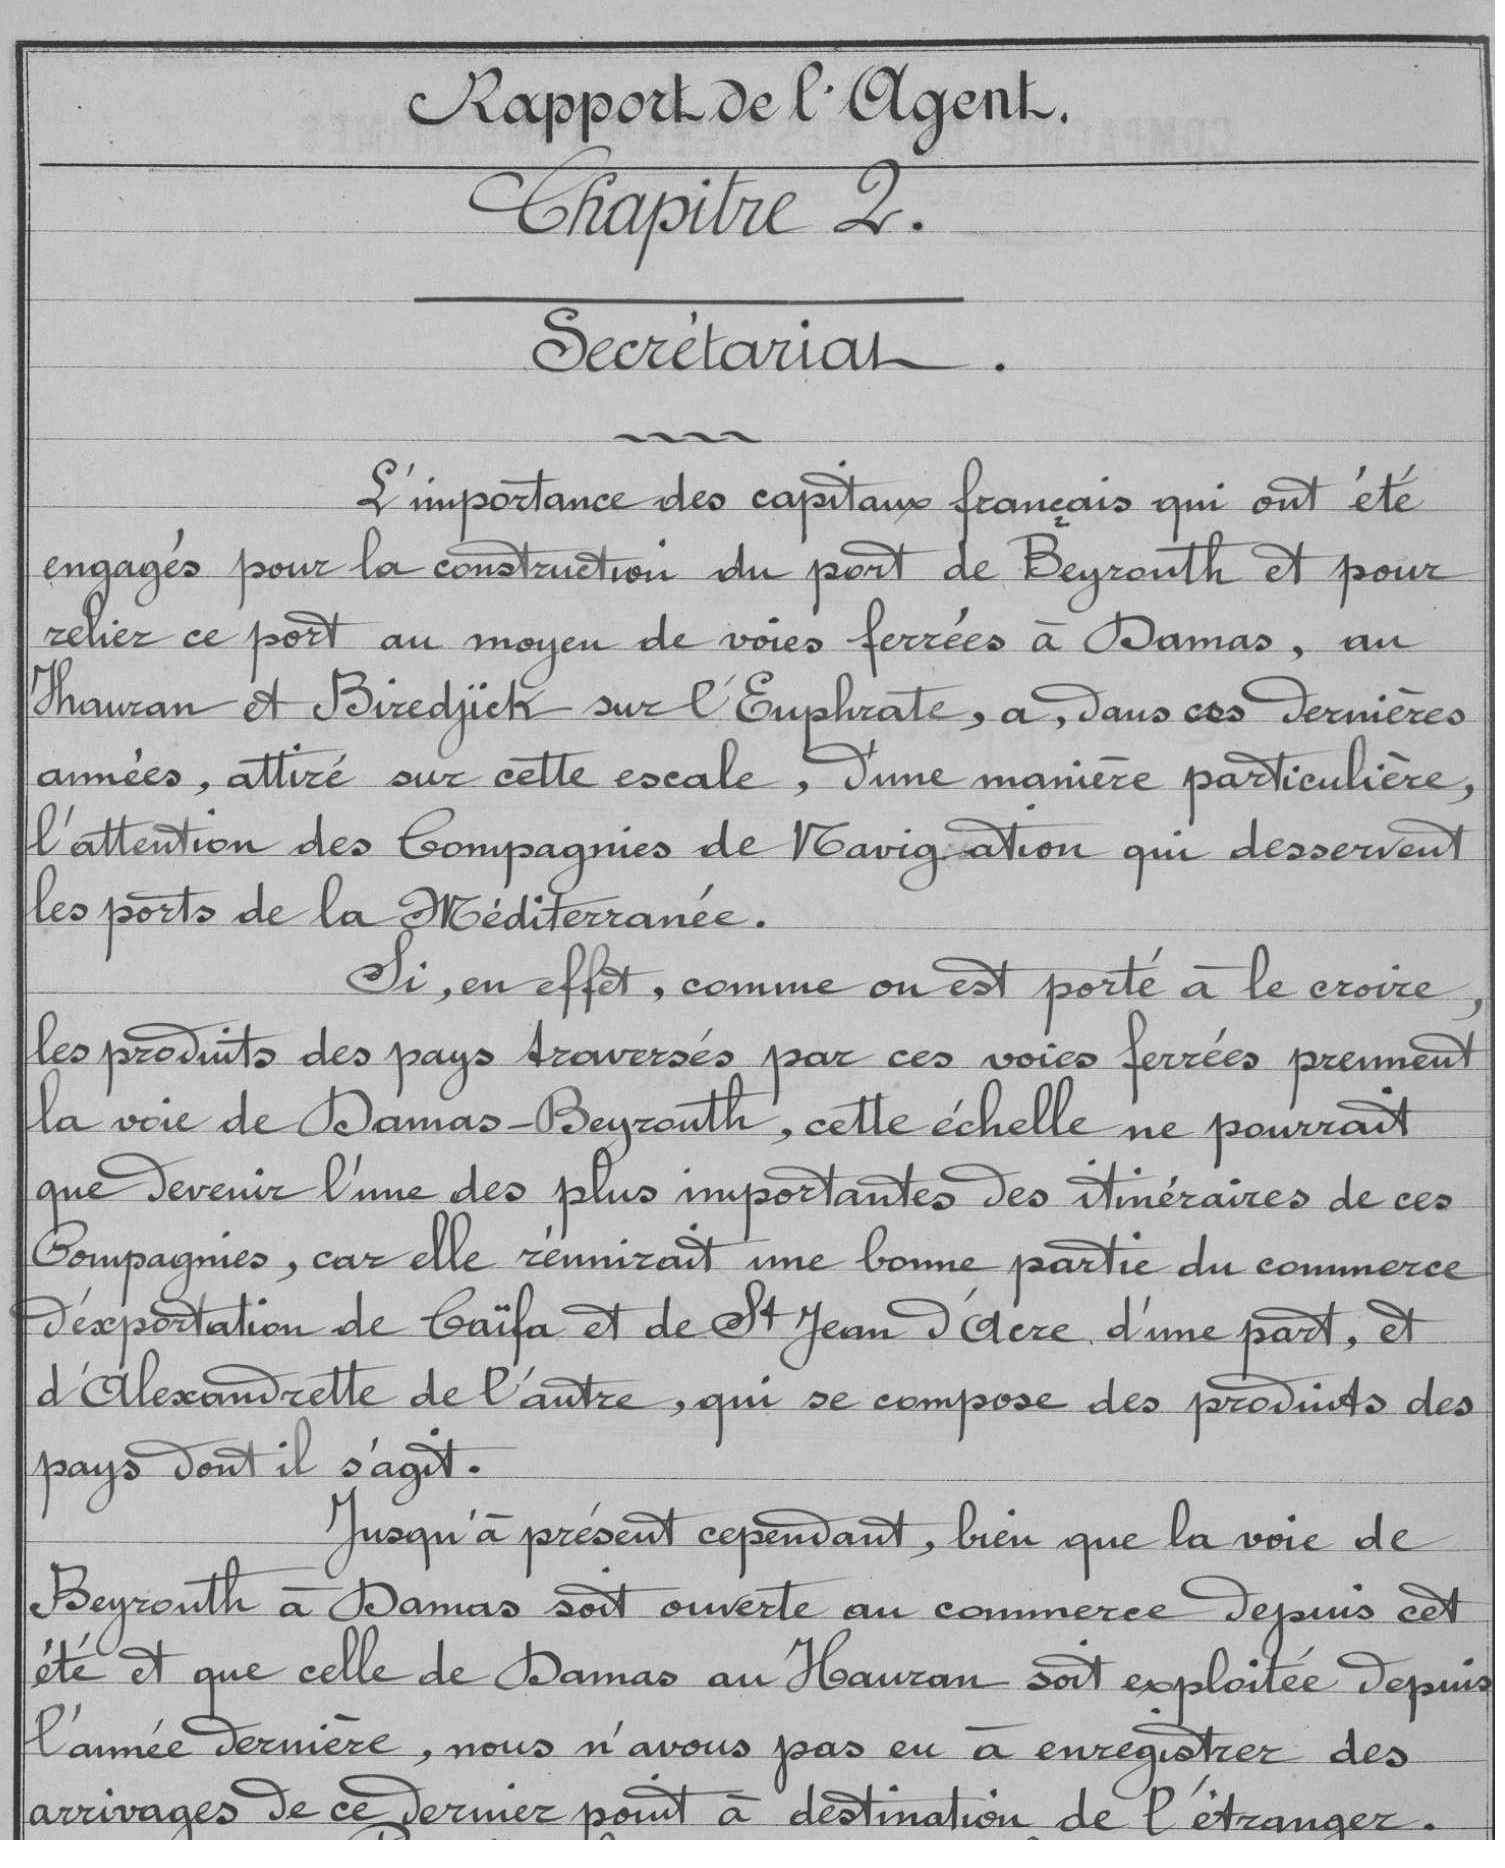 Rapport de l'Agent.
Chapitre 2.
Secrétariat.
L'importance des capitaux français qui ont été
engagés pour la construction du port de Beyrouth et pour
relier ce port au moyen de voies ferrées à Damas, au
Hauran et Biredjïck sur l'Euphrate, a, dans ces dernières
années, attiré sur cette escale, d'une manière particulière,
l'attention des Compagnies de Navigation qui desservent
les ports de la Méditerranée.
Si, en effet, comme on est porté à le croire,
les produits des pays traversés par ces voies ferrées prennent
la voie de Damas-Beyrouth, cette échelle ne pourrait
que devenir l'une des plus importantes des itinéraires de ces
Compagnies, car elle réunirait une bonne partie du commerce
d'éxportation de Caïfa et de St Jean d'Acre d'une part, et
d'Alexandrette de l'autre, qui se compose des produits des
pays dont il s'agit.
Jusqu'à présent cependant, bien que la voie de
Beyrouth à Damas soit ouverte au commerce depuis cet
été et que celle de Damas au Hauran soit exploitée depuis
l'année dernière, nous n'avons pas eu à enregistrer des
arrivages de ce dernier point à destination de l'étranger.